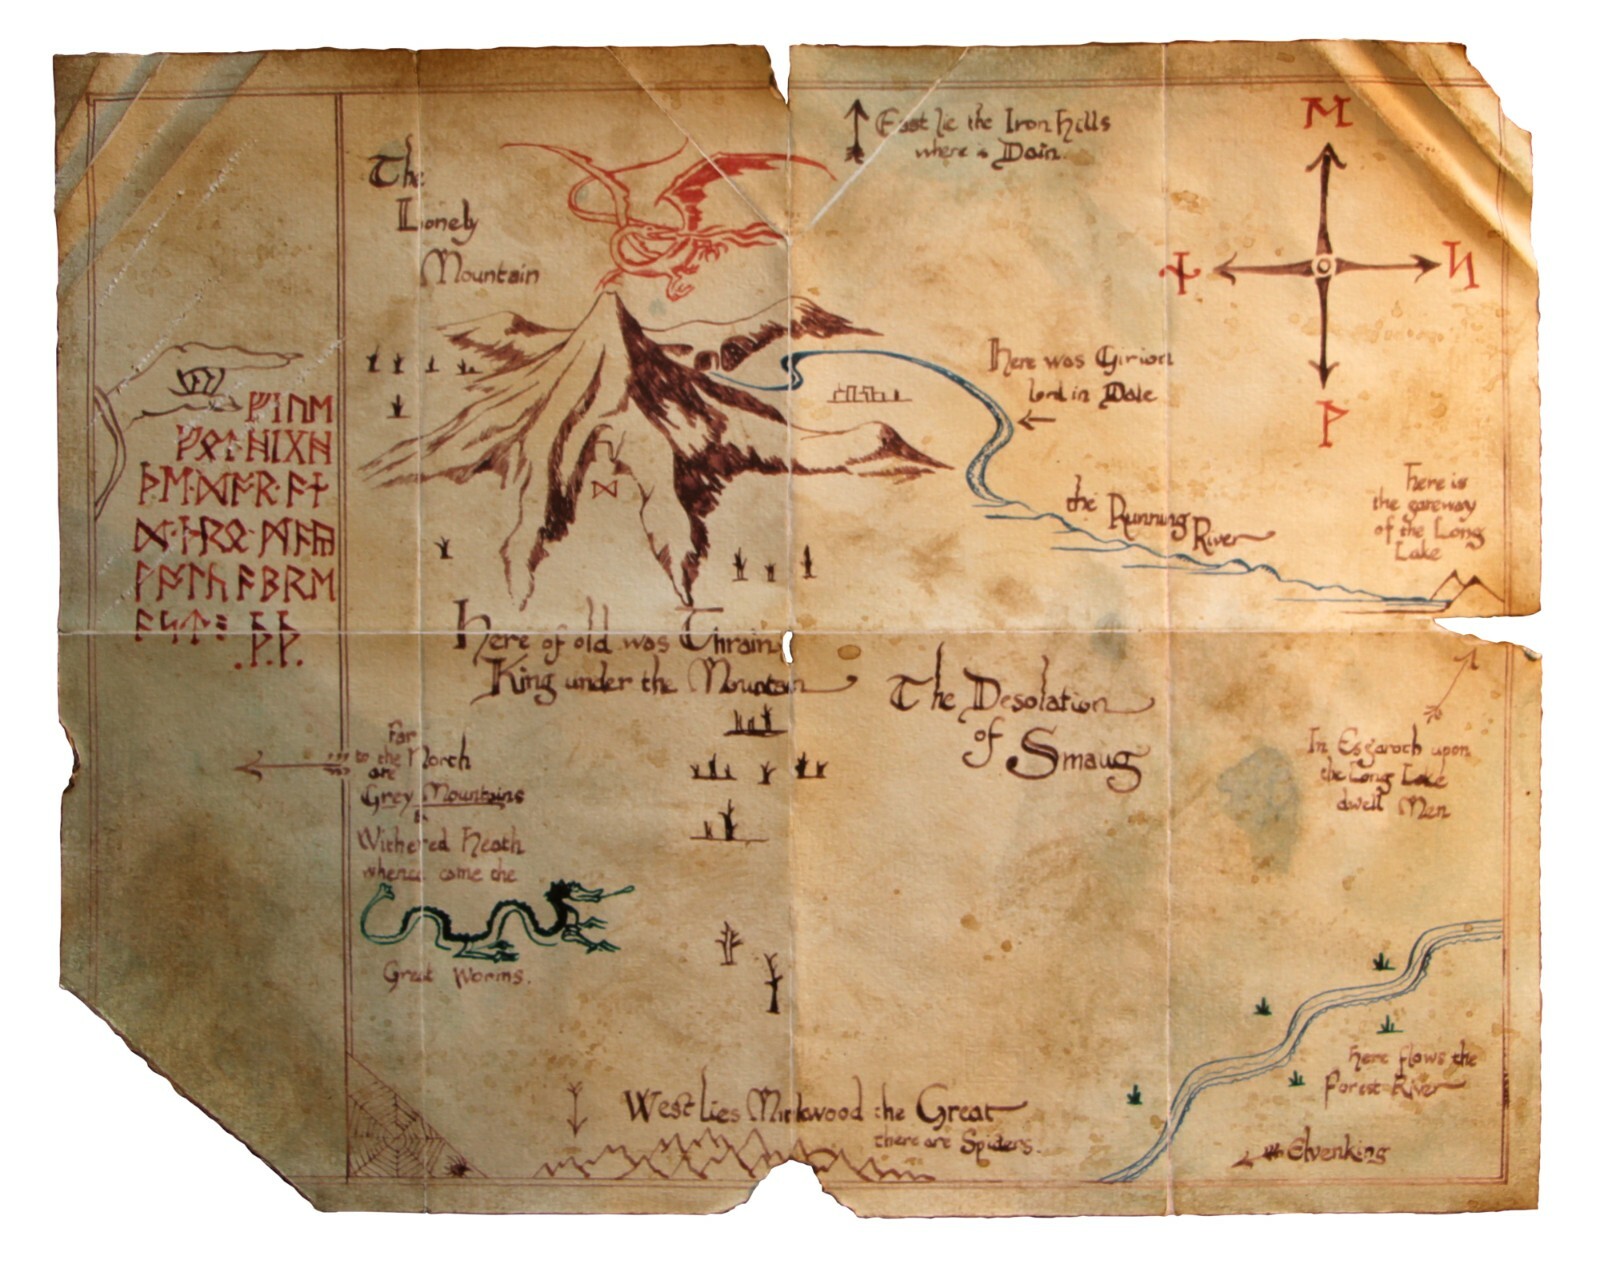 East lie the Iron Hills
where is Dain.
ᛖ
ᚾ
ᛋ
ᚹ
The
Lonely
Mountain
Here was Girion
lord in Dale
ᚠᛁᚢᛖ
ᚠᚩᛏ·ᚻᛁᚷᚻ
ᚦᛖ·ᛞᚩᚱ·ᚪᚾ
ᛞ· ·ᛗᚪᚣ
ᚹᚩᛚᚳ ᚪᛒᚱᛖ
ᚪᛋᛏ᛬ ᚦ·ᚦ·
ᛞ
the Running
River
Here is
the gateway
of the Long
Lake
Here of old was Thrain
King under the Mountain
The Desolation
of Smaug
Far
to the North
are
Grey Mountains
&
Withered Heath
whence came the
Great Worms.
In Esgaroth upon
the Long Lake
dwell Men
Here flows the
Forest River
Elvenking
West lies Mirkwood the Great
there are Spiders.